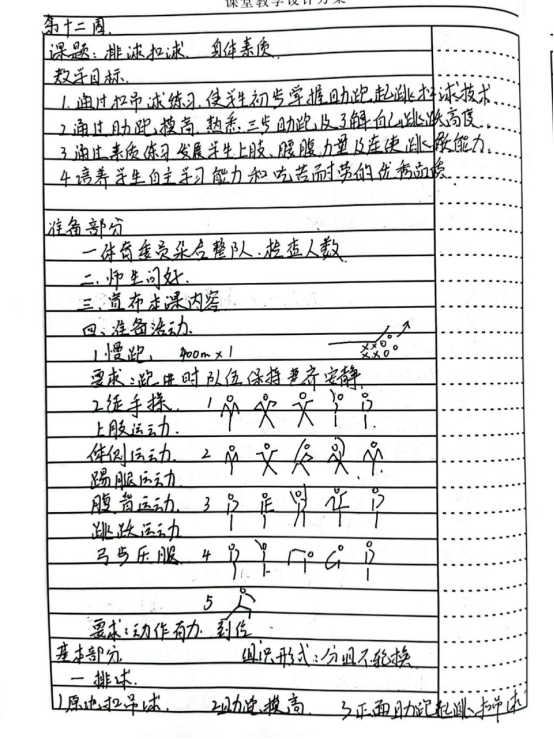 课堂教学设计方案
第十二周
课题：排球扣球、身体素质
教学目标
1.通过扣吊球练习，使学生初步掌握助跑起跳扣球技术
2.通过助跑，摸高，熟悉三步助跑，及了解自己跳跃高度
3.通过素质练习发展学生上肢、腰腹力量及连续跳跃能力
4.培养学生自主学习能力和吃苦耐劳的优秀品质
准备部分
一.体育委员集合整队、检查人数
二.师生问好.
三.宣布本课内容
四、准备活动.
1.慢跑， 400m×1
要求：跑进时队伍保持整齐安静
2.徒手操. 1
上肢运动.
体侧运动 2
踢腿运动
腹背运动 3
跳跃运动
弓步压腿 4
5
要求：动作有力 到位
基本部分 组织形式：分组不轮换
一排球.
1原地扣吊球. 2助跑摸高. 3正面助跑起跳扣吊球